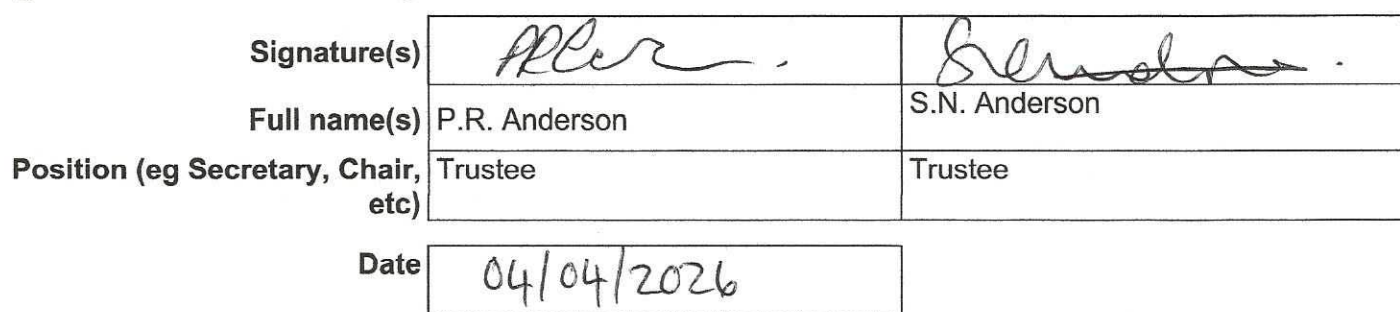 Signature(s)
Full name(s) P.R. Anderson S.N. Anderson
Position (eg Secretary, Chair, etc) Trustee Trustee
Date 04/04/2026